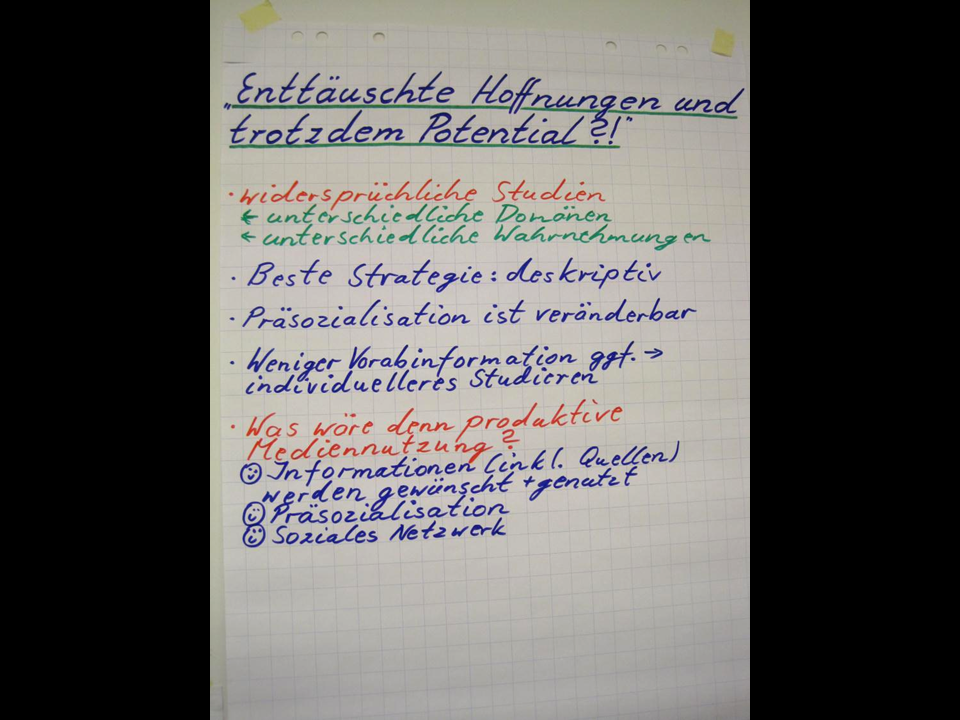 „Enttäuschte Hoffnungen und
trotzdem Potential?!"
· widersprüchliche Studien
← unterschiedliche Domänen
← unterschiedliche Wahrnehmungen
· Beste Strategie: deskriptiv
· Präsozialisation ist veränderbar
· Weniger Vorabinformation ggf. →
individuelleres Studieren
· Was wäre denn produktive
Mediennutzung?
☺ Informationen (inkl. Quellen)
werden gewünscht + genutzt
☺ Präsozialisation
☺ Soziales Netzwerk